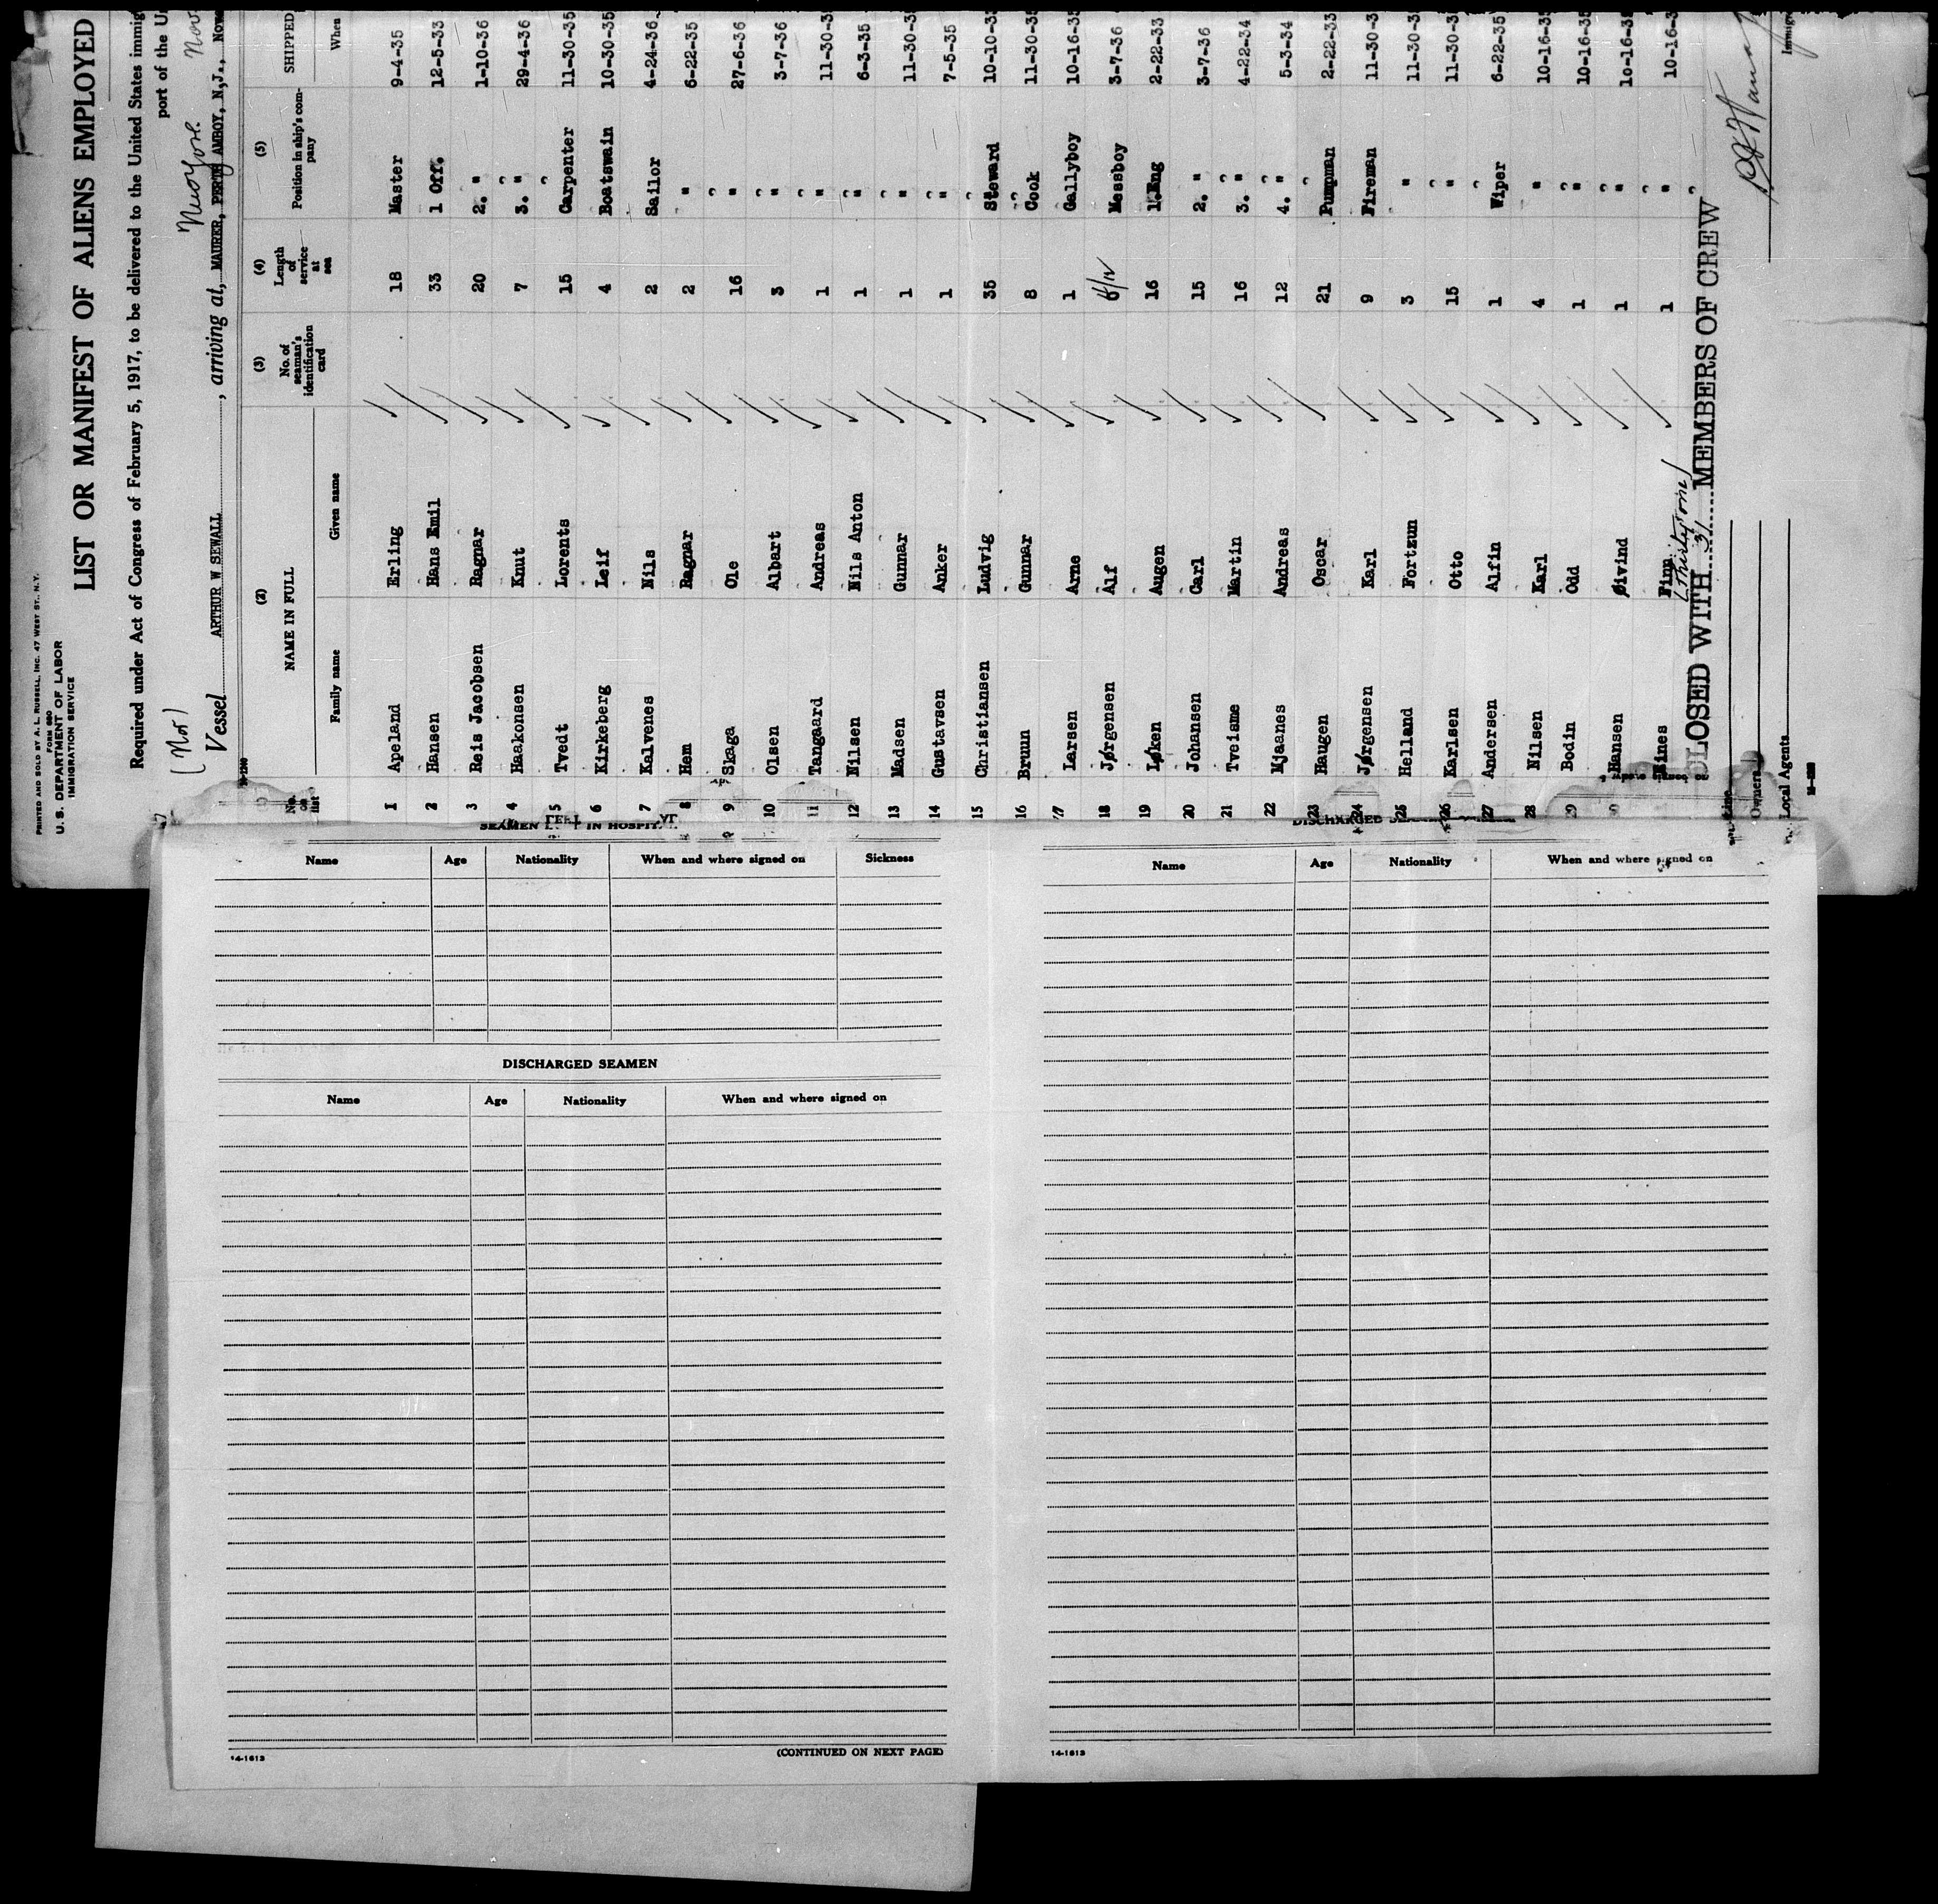 PRINTED AND SOLD BY A. L. RUSSELL, INC. 47 WEST ST., N.Y.
FORM 680
U. S. DEPARTMENT OF LABOR
IMMIGRATION SERVICE
LIST OR MANIFEST OF ALIENS EMPLOYED
Required under Act of Congress of February 5, 1917, to be delivered to the United States immig
port of the U
(Nor)
Vessel ARTHUR W SEWALL, arriving at, MAURER, PERTH AMBOY, N,J., Nov
(2) (3) (4) (5) SHIPPED
No. on list NAME IN FULL No. of seaman's identification card Length of service at sea Position in ship's company When
Family name Given name
1 Apeland Erling 18 Master 9-4-35
2 Hansen Hans Emil 33 1 Off. 12-5-33
3 Reis Jacobsen Ragnar 20 2. " 1-10-36
4 Haakonsen Knut 7 3. " 29-4-36
5 Tvedt Lorents 15 Carpenter 11-30-35
6 Kirkeberg Leif 4 Boatswain 10-30-35
7 Kalvenes Nils 2 Sailor 4-24-36
8 Hem Ragnar 2 " 6-22-35
9 Skaga Ole 16 " 27-6-36
10 Olsen Albart 3 " 3-7-36
11 Tangaard Andreas 1 " 11-30-3
12 Nilsen Nils Anton 1 " 6-3-35
13 Madsen Gunnar 1 " 11-30-3
14 Gustavsen Anker 1 " 7-5-35
15 Christiansen Ludvig 35 Steward 10-10-3
16 Bruun Gunnar 8 Cook 11-30-35
17 Larsen Arne 1 Gallyboy 10-16-35
18 Jørgensen Alf Messboy 3-7-36
19 Løken Augen 16 1.Eng 2-22-33
20 Johansen Carl 15 2. " 3-7-36
21 Tveisme Martin 16 3. " 4-22-34
22 Mjaanes Andreas 12 4. " 5-3-34
23 Haugen Oscar 21 Pumpman 2-22-33
24 Jørgensen Karl 9 Fireman 11-30-3
25 Helland Fortzun 3 " 11-30-3
26 Karlsen Otto 15 " 11-30-3
27 Andersen Alfin 1 Wiper 6-22-35
28 Nilsen Karl 4 " 10-16-35
29 Bodin Odd 1 " 10-16-35
Hansen Øivind 1 " 10-16-3
Hines Finn 1 " 10-16-3
(Thirty one)
CLOSED WITH 31 MEMBERS OF CREW
Owners
Local Agents
Immigr
SEAMEN LEFT IN HOSPITAL
Name Age Nationality When and where signed on Sickness
DISCHARGED SEAMEN
Name Age Nationality When and where signed on
14-1613 (CONTINUED ON NEXT PAGE)
DISCHARGED
Name Age Nationality When and where signed on
14-1613